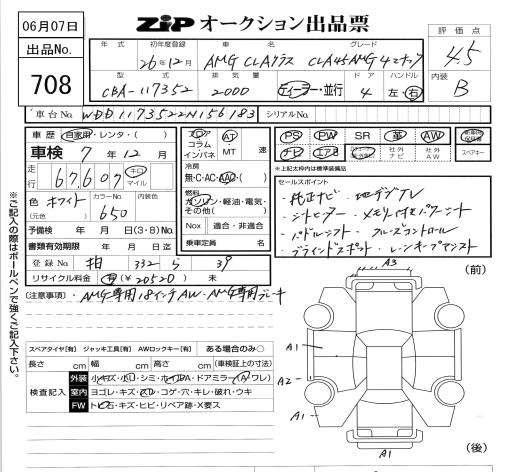 06月07日
ZIP オークション出品票
出品No.
708
年式 初年度登録 車名 グレード
26年12月 AMG CLAクラス CLA45AMG 4マチック
型式 排気量 ドア ハンドル
CBA-117352 2000 ディーラー・並行 4 左・右
評価点
4.5
内装
B
車台No. WDD1173522N156183 シリアルNo.
車歴 自家用・レンタ・( )
車検 7年12月
走行 67,607 キロ マイル
色 ホワイト カラーNo. 650 内装色
(元色)
予備検 年 月 日(3・8)No.
書類有効期限 年 月 日迄
登録No. 柏 332 ら 39
リサイクル料金 有(¥20520) 未
フロア
コラム
インパネ
AT
・
MT 速
冷房
無・C・AC・AAC・( )
燃料
ガソリン・軽油・電気・
その他( )
Nox 適合・非適合
乗車定員 名
PS PW SR 革 AW 新車時保証書
ナビ エアB 社外ナビ 社外AW スペアキー
※上記太枠内は標準装備品
セールスポイント
・純正ナビ ・地デジTV
・シートヒーター ・メモリ付きパワーシート
・パドルシフト ・クルーズコントロール
・ブラインドスポット ・レーンキープアシスト
(注意事項)・AMG専用18インチAW・AMG専用ブレーキ
※ご記入の際はボールペンで強くご記入下さい。
スペアタイヤ[有] ジャッキ工具[有] AWロックキー[有] ある場合のみ○
長さ cm 幅 cm 高さ cm (車検証上の寸法)
検査記入
外装 小キズ・小凹・シミ・ホイルA・ドアミラー(A・ワレ)
室内 ヨゴレ・キズ・スレ・コゲ・穴・キレ・破れ・ウキ
FW トビ石・キズ・ヒビ・リペア跡・X要ス
A3
(前)
A1
A2
A1
A1
(後)